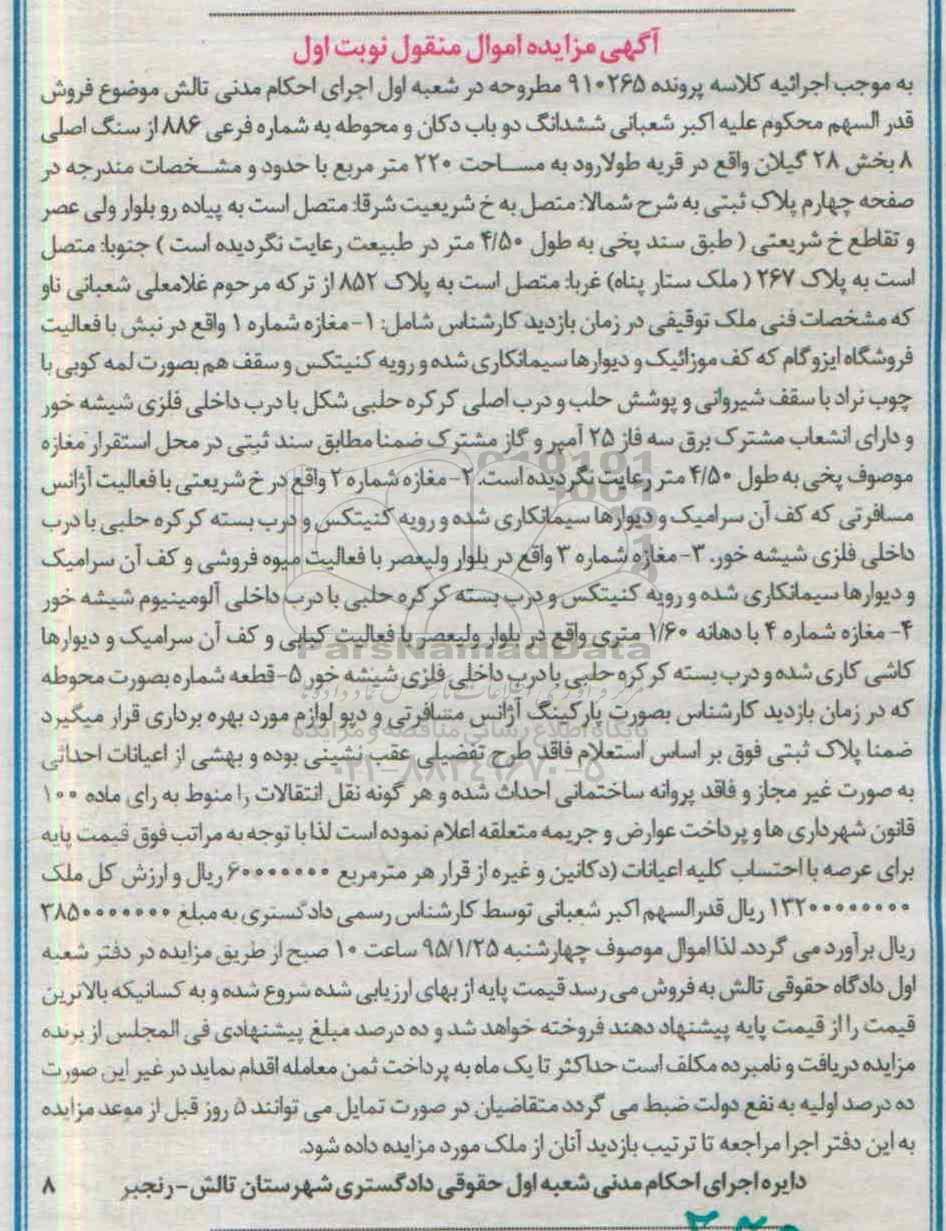 آگهی مزایده اموال منقول نوبت اول
به موجب اجرائیه کلاسه پرونده ۹۱۰۲۶۵ مطروحه در شعبه اول اجرای احکام مدنی تالش موضوع فروش
قدر السهم محکوم علیه اکبر شعبانی ششدانگ دو باب دکان و محوطه به شماره فرعی ۸۸۶ از سنگ اصلی
۸ بخش ۲۸ گیلان واقع در قریه طولارود به مساحت ۲۲۰ متر مربع با حدود و مشخصات مندرجه در
صفحه چهارم پلاک ثبتی به شرح شمالا: متصل به خ شریعیت شرقا: متصل است به پیاده رو بلوار ولی عصر
و تقاطع خ شریعتی ( طبق سند پخی به طول ۴/۵۰ متر در طبیعت رعایت نگردیده است ) جنوبا: متصل
است به پلاک ۲۶۷ ( ملک ستار پناه) غربا: متصل است به پلاک ۸۵۲ از ترکه مرحوم غلامعلی شعبانی ناو
که مشخصات فنی ملک توقیفی در زمان بازدید کارشناس شامل: ۱- مغازه شماره ۱ واقع در نبش با فعالیت
فروشگاه ایزوگام که کف موزائیک و دیوارها سیمانکاری شده و رویه کنیتکس و سقف هم بصورت لمه کوبی با
چوب نراد با سقف شیروانی و پوشش حلب و درب اصلی کرکره حلبی شکل با درب داخلی فلزی شیشه خور
و دارای انشعاب مشترک برق سه فاز ۲۵ آمپر و گاز مشترک ضمنا مطابق سند ثبتی در محل استقرار مغازه
موصوف پخی به طول ۴/۵۰ متر رعایت نگردیده است. ۲- مغازه شماره ۲ واقع در خ شریعتی با فعالیت آژانس
مسافرتی که کف آن سرامیک و دیوارها سیمانکاری شده و رویه کنیتکس و درب بسته کرکره حلبی با درب
داخلی فلزی شیشه خور. ۳- مغازه شماره ۳ واقع در بلوار ولیعصر با فعالیت میوه فروشی و کف آن سرامیک
و دیوارها سیمانکاری شده و رویه کنیتکس و درب بسته کرکره حلبی با درب داخلی آلومینیوم شیشه خور
۴- مغازه شماره ۴ با دهانه ۱/۶۰ متری واقع در بلوار ولیعصر با فعالیت کبابی و کف آن سرامیک و دیوارها
ParsNamadData
کاشی کاری شده و درب بسته کرکره حلبی با درب داخلی فلزی شیشه خور ۵- قطعه شماره بصورت محوطه
که در زمان بازدید کارشناس بصورت پارکینگ آژانس مسافرتی و دپو لوازم مورد بهره برداری قرار میگیرد
پایگاه اطلاع رسانی مناقصه و مزایده
ضمنا پلاک ثبتی فوق بر اساس استعلام فاقد طرح تفضیلی عقب نشینی بوده و بهشی از اعیانات احداثی
۰۲۱-۸۸۳۴۹۶۷۰-۵
به صورت غیر مجاز و فاقد پروانه ساختمانی احداث شده و هر گونه نقل انتقالات را منوط به رای ماده ۱۰۰
قانون شهرداری ها و پرداخت عوارض و جریمه متعلقه اعلام نموده است لذا با توجه به مراتب فوق قیمت پایه
برای عرصه با احتساب کلیه اعیانات (دکانین و غیره از قرار هر مترمربع ۶۰۰۰۰۰۰۰ ریال و ارزش کل ملک
۱۳۲۰۰۰۰۰۰۰۰ ریال قدرالسهم اکبر شعبانی توسط کارشناس رسمی دادگستری به مبلغ ۳۸۵۰۰۰۰۰۰۰
ریال برآورد می گردد. لذا اموال موصوف چهارشنبه ۹۵/۱/۲۵ ساعت ۱۰ صبح از طریق مزایده در دفتر شعبه
اول دادگاه حقوقی تالش به فروش می رسد قیمت پایه از بهای ارزیابی شده شروع شده و به کسانیکه بالاترین
قیمت را از قیمت پایه پیشنهاد دهند فروخته خواهد شد و ده درصد مبلغ پیشنهادی فی المجلس از برنده
مزایده دریافت و نامبرده مکلف است حداکثر تا یک ماه به پرداخت ثمن معامله اقدام نماید در غیر این صورت
ده درصد اولیه به نفع دولت ضبط می گردد متقاضیان در صورت تمایل می توانند ۵ روز قبل از موعد مزایده
به این دفتر اجرا مراجعه تا ترتیب بازدید آنان از ملک مورد مزایده داده شود.
دایره اجرای احکام مدنی شعبه اول حقوقی دادگستری شهرستان تالش- رنجبر ۸